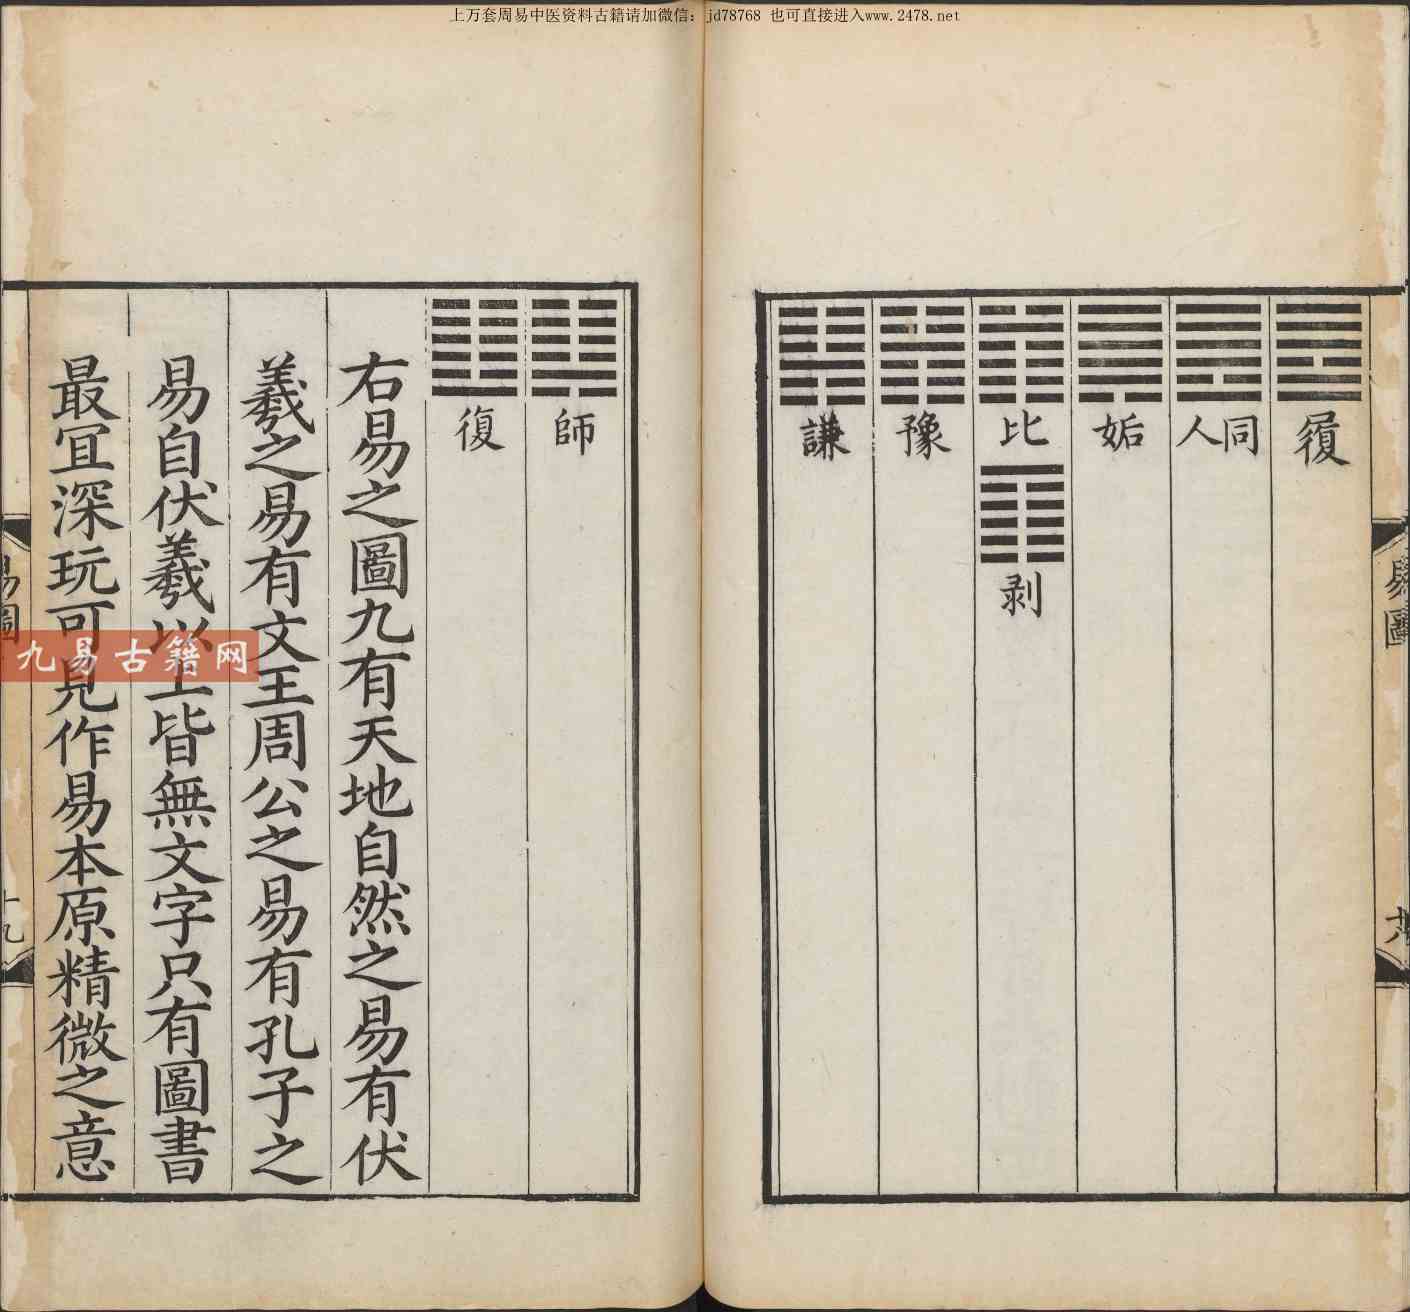 上万套周易中医资料古籍请加微信：jd78768 也可直接进入www.2478.net
易圖
履
同人
姤
比
剥
豫
謙
師
復
右易之圖九有天地自然之易有伏
羲之易有文王周公之易有孔子之
易自伏羲以上皆無文字只有圖書
最宜深玩可見作易本原精微之意
易圖
十九
九易古籍网